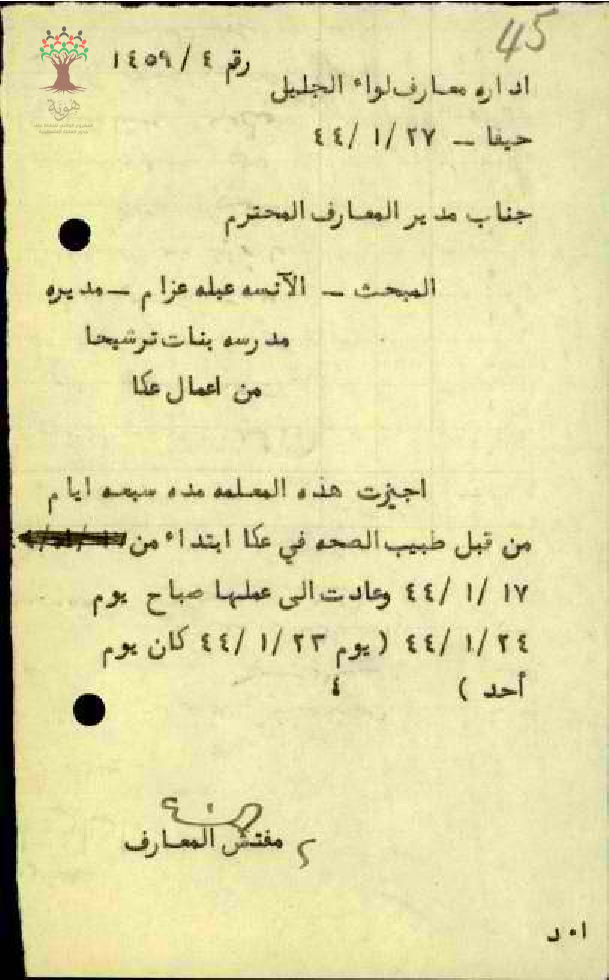 45
هوية
رقم ٤ / ١٤٥٩
اداره معارف لواء الجليل
حيفا - ٢٧ /١ /٤٤
جناب مدير المعارف المحترم
المبحث - الآنسه عبله عزام - مديره
مدرسه بنات ترشيحا
من اعمال عكا
اجيزت هذه المعلمه مده سبعه ايام
من قبل طبيب الصحه في عكا ابتداء من
١٧ /١ /٤٤ وعادت الى عملها صباح يوم
٢٤ /١ /٤٤ ( يوم ٢٣ /١ /٤٤ كان يوم
أحد )
مفتش المعارف
ا٠ د